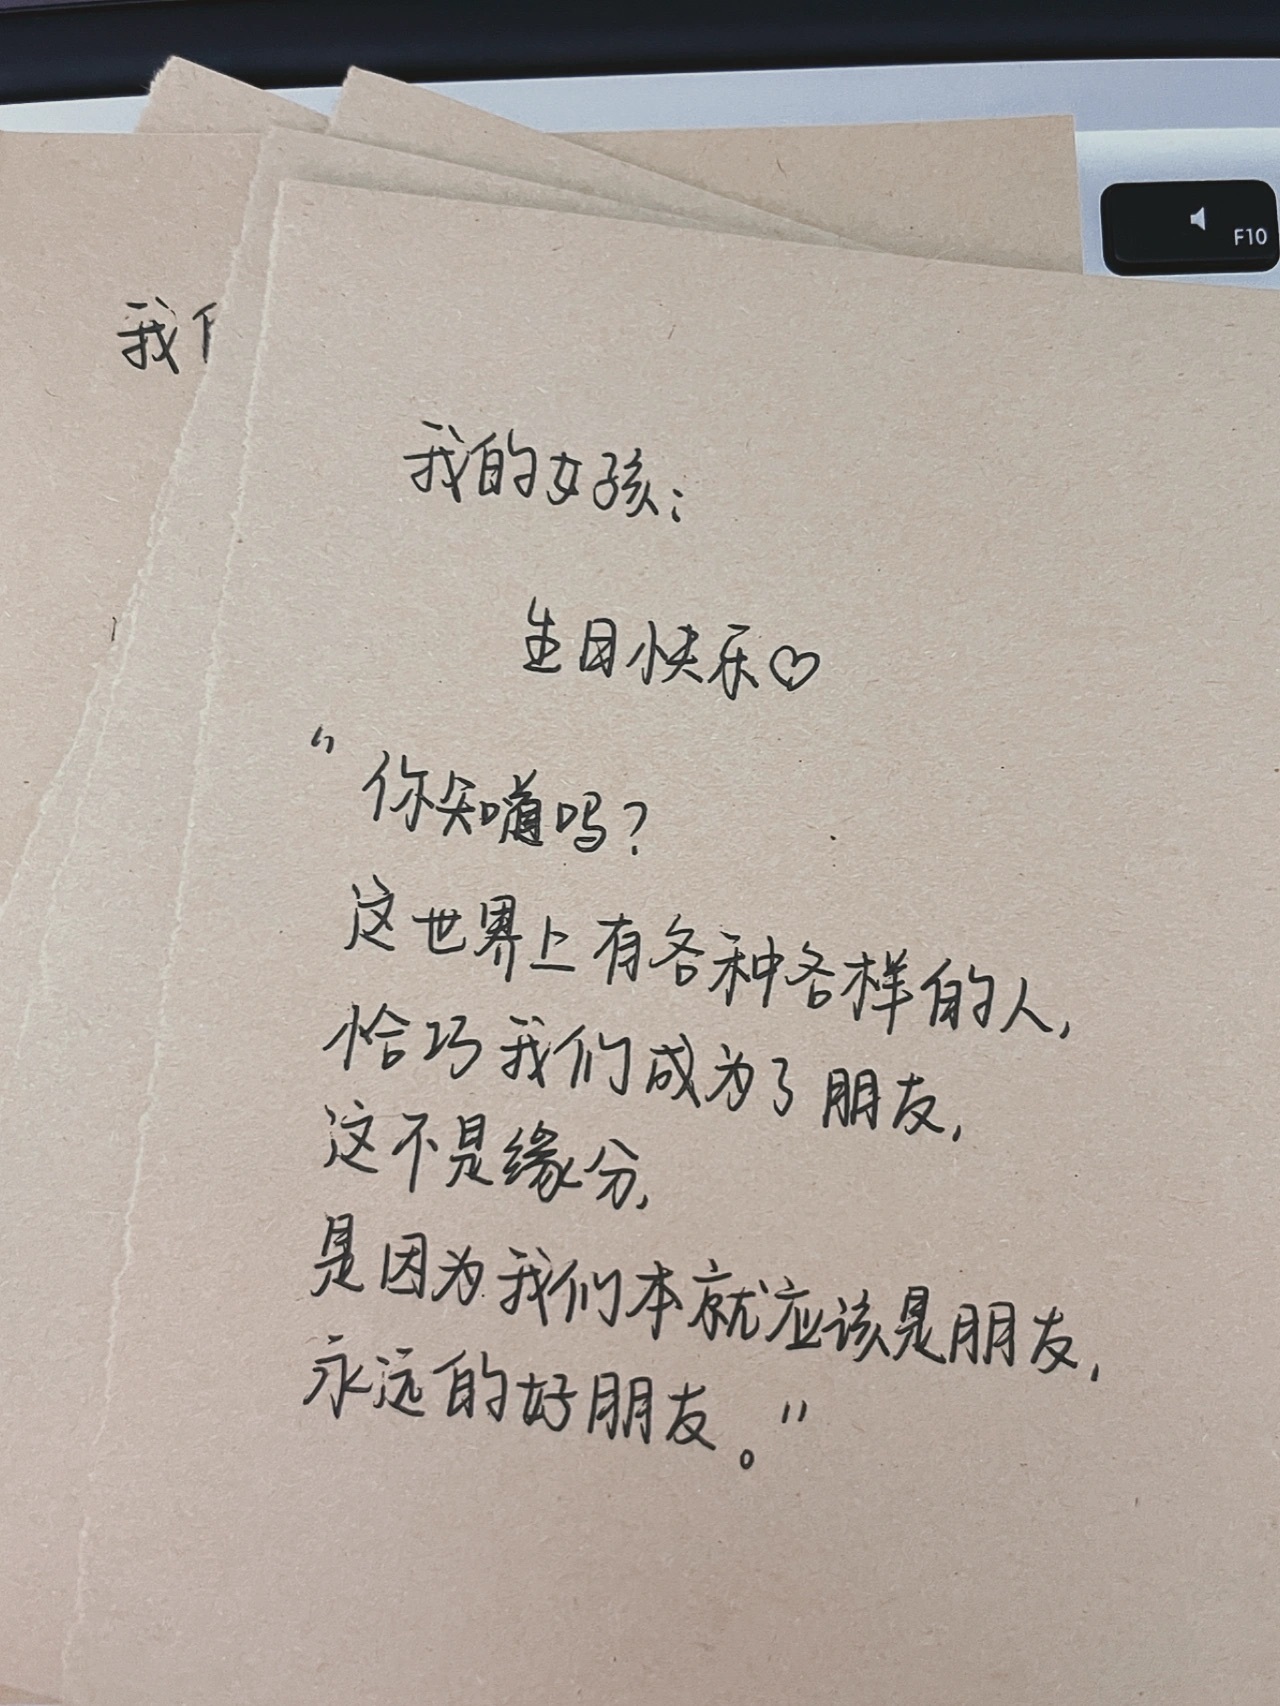 F10
我
我的女孩：
生日快乐♡
“你知道吗？
这世界上有各种各样的人，
恰巧我们成为了朋友，
这不是缘分，
是因为我们本就应该是朋友，
永远的好朋友。”